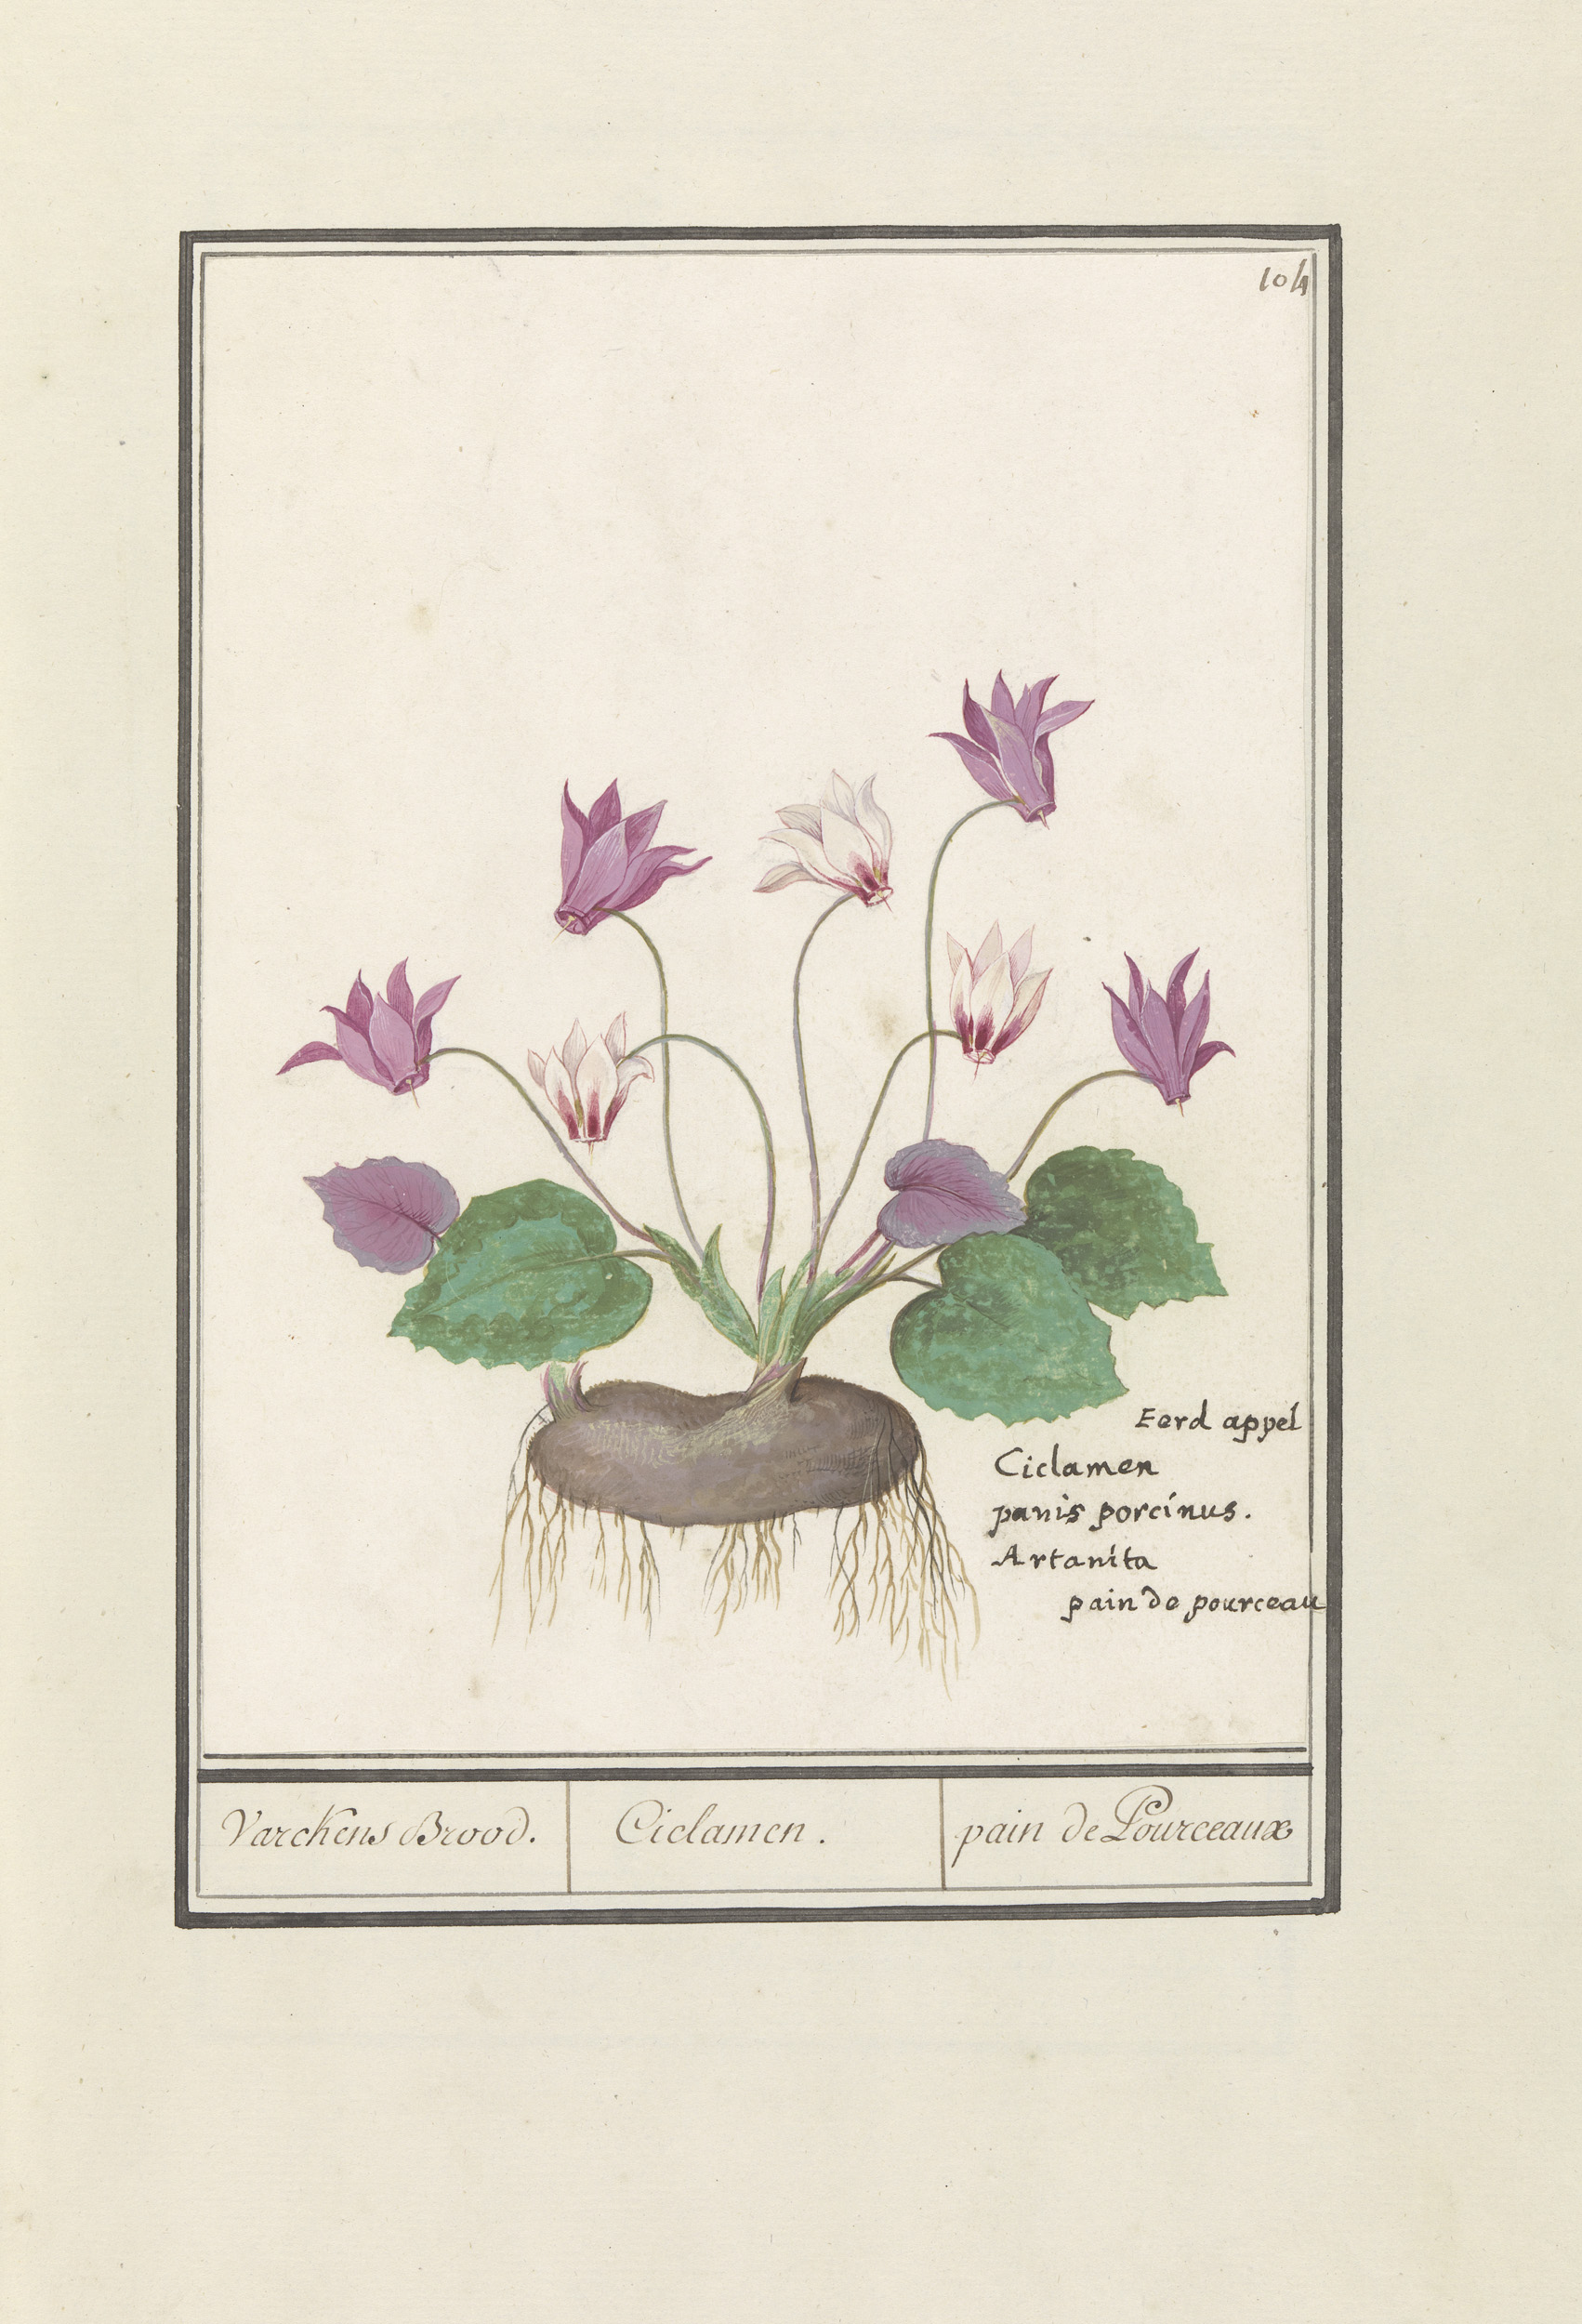 104
Eerd appel
Ciclamen
panis porcinus.
Artanita
pain de pourceau
Varckens Brood.
Ciclamen.
pain de Pourceaux